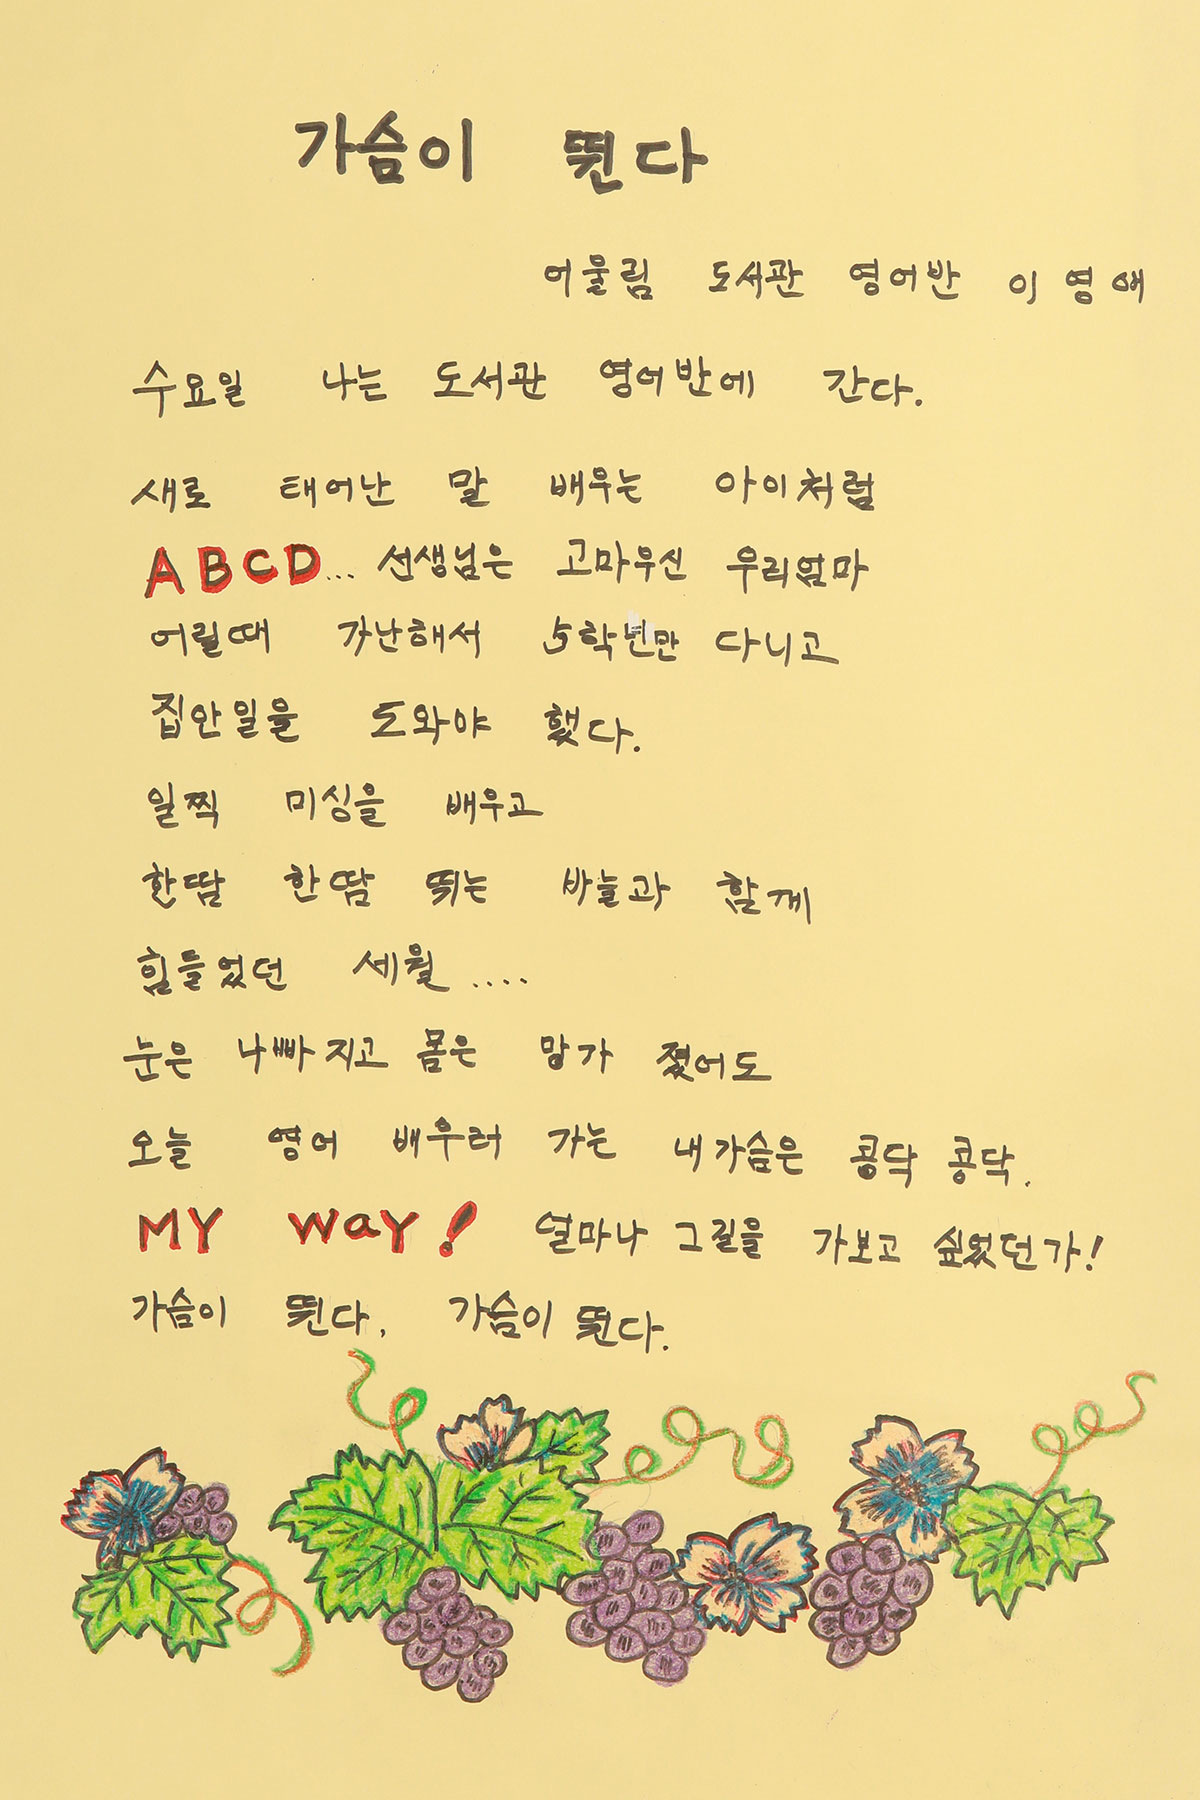 가슴이 뛴다
어울림 도서관 영어반 이영애
수요일 나는 도서관 영어반에 간다.
새로 태어난 말 배우는 아이처럼
ABCD... 선생님은 고마우신 우리엄마
어릴때 가난해서 5학년만 다니고
집안일을 도와야 했다.
일찍 미싱을 배우고
한땀 한땀 뛰는 바늘과 함께
힘들었던 세월....
눈은 나빠지고 몸은 망가 졌어도
오늘 영어 배우러 가는 내가슴은 콩닥 콩닥.
MY WaY! 얼마나 그길을 가보고 싶었던가!
가슴이 뛴다, 가슴이 뛴다.